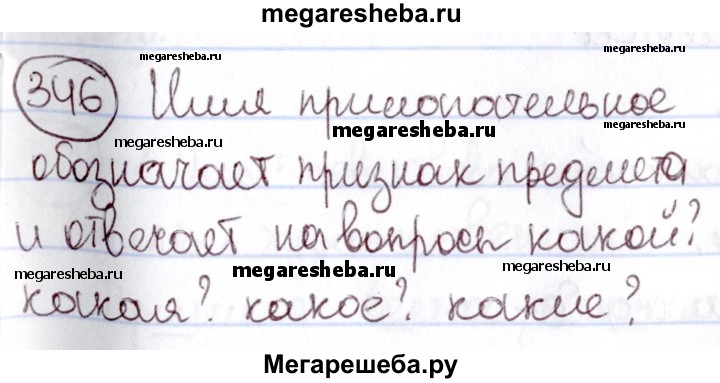 megaresheba.ru
megaresheba.ru
megaresheba.ru
346 Имя прилагательное
megaresheba.ru
megaresheba.ru
megaresheba.ru
обозначает признак предмета
и отвечает на вопросы какой?
megaresheba.ru
megaresheba.ru
megaresheba.ru
какая? какое? какие?
Мегарешеба.ру